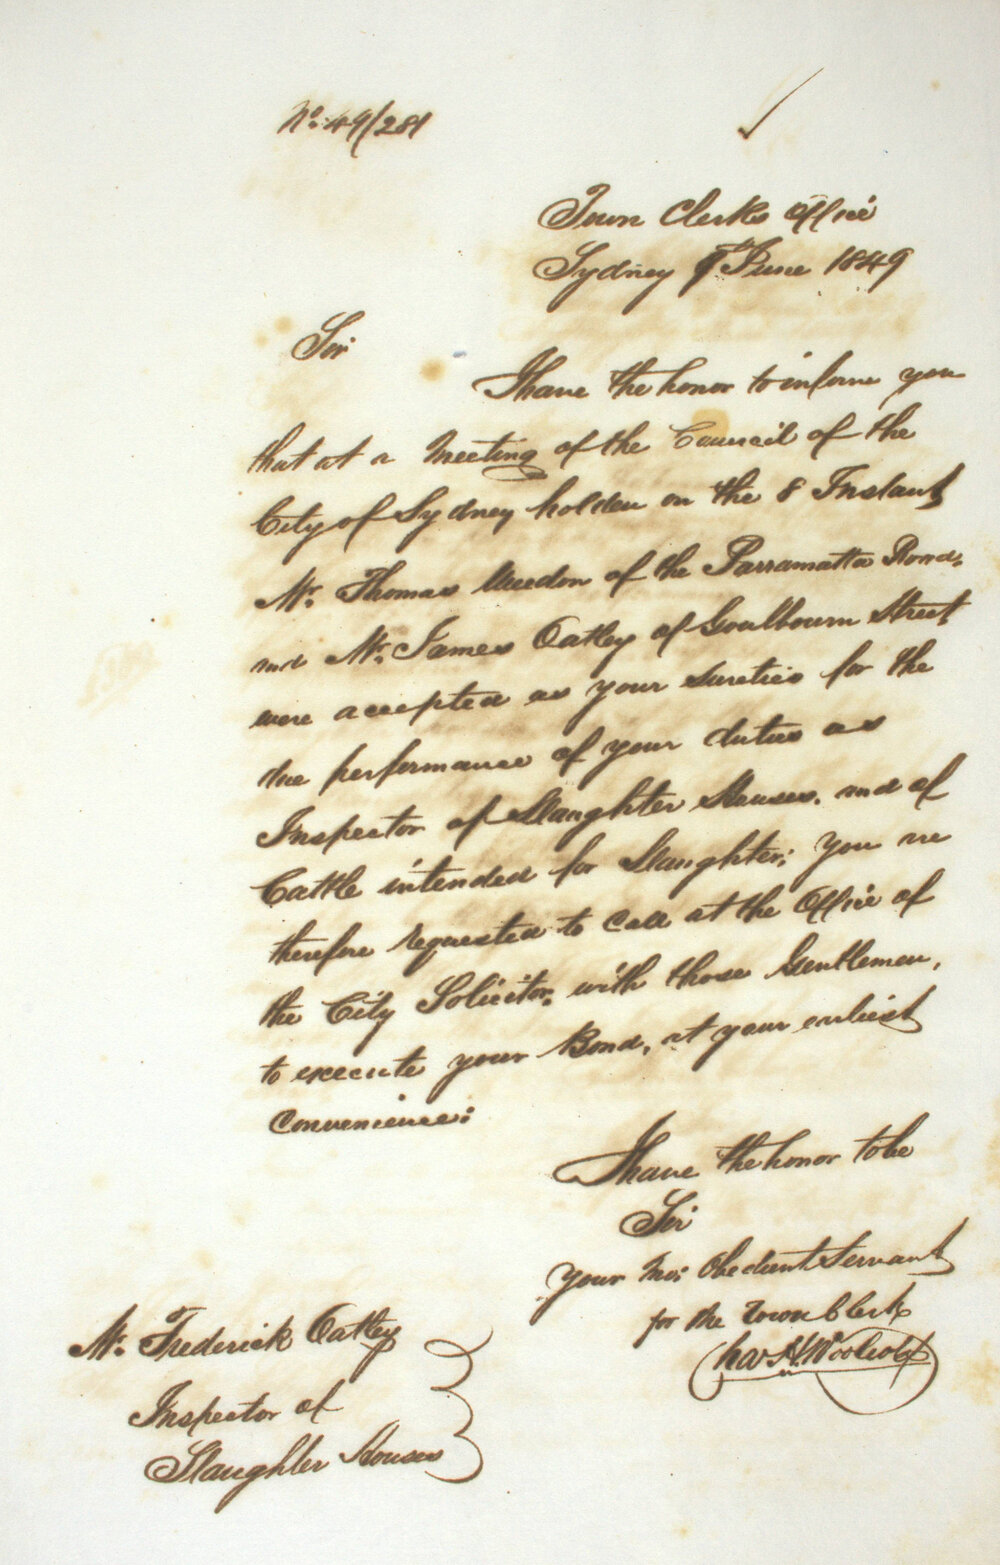 No. 49/281
Town Clerks Office
Sydney 9th June 1849
Sir
I have the honor to inform you
that at a Meeting of the Council of the
City of Sydney holden on the 8 Instant
Mr. Thomas of the Parramatta Road,
and Mr. James Oatley of Goulbourn Street
were accepted as your Sureties for the
due performance of your duties as
Inspector of Slaughter Houses, and of
Cattle intended for Slaughter; You are
therefore requested to call at the Office of
the City Solicitor, with those Gentlemen,
to execute your Bond, at your earliest
Convenience:
I have the honor to be
Sir
Your Mo: Obedient Servant
for the Town Clerk
Chas H. Woolcott
Mr. Frederick Oatley
Inspector of
Slaughter Houses